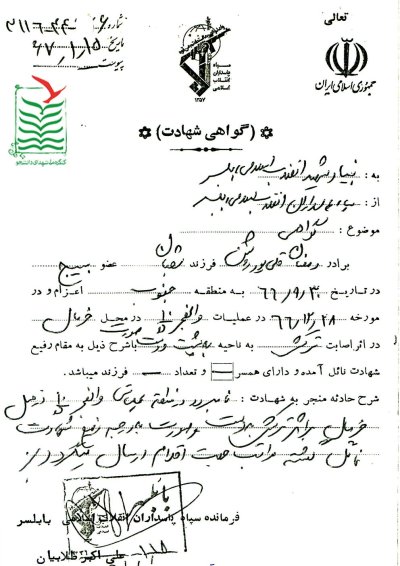 تعالی
شماره ۳۱۱۶۰۴۴۰۶
تاریخ ۶۷/۱/۱۵
پیوست
سپاه
پاسداران
انقلاب
اسلامی
۱۳۵۷
جمهوری اسلامی ایران
کنگره ملی شهدای دانشجو
(گواهی شهادت)
به: بنیاد شهید انقلاب اسلامی بابلسر
از: سپاه پاسداران انقلاب اسلامی بابلسر
موضوع: گواهی
برادر رمضان قلی‌پور فرزند عضو بسیج
در تاریخ ۶۶/۹/۳۰ به منطقه جنوب اعزام و در
مورخه ۶۶/۱۲/۲۸ در عملیات والفجر ۱۰ در محل خرمال
در اثر اصابت ترکش به ناحیه پشت و صورت باشرح ذیل به مقام رفیع
شهادت نائل آمده و دارای همسر — و تعداد — فرزند میباشد.
شرح حادثه منجر به شهادت: نامبرده در منطقه عملیاتی والفجر ۱۰ در محل
خرمال بر اثر ترکش به پشت و صورت به درجه رفیع شهادت
نائل گشته مراتب جهت اقدام ارسال میگردد
فرمانده سپاه پاسداران انقلاب اسلامی بابلسر
علی اکبر طلابیان